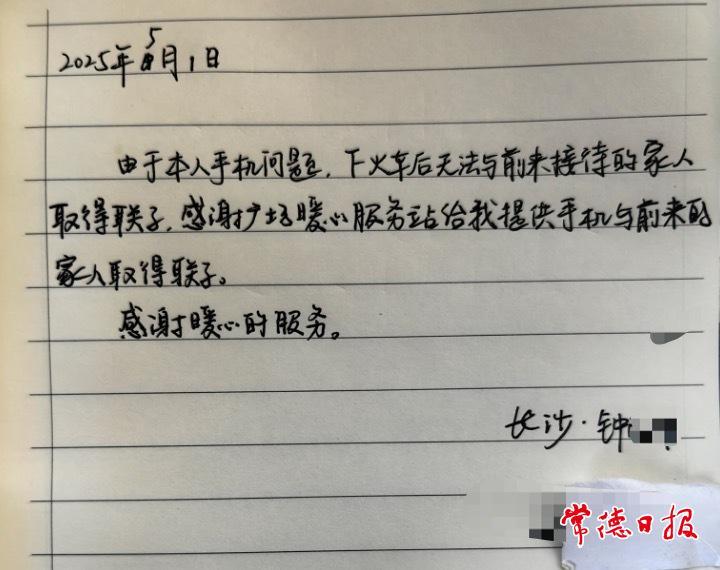 2025年5月1日
由于本人手机问题，下火车后无法与前来接待的家人
取得联系，感谢广场暖心服务站给我提供手机与前来的
家人取得联系。
感谢暖心的服务。
长沙·钟
常德日报